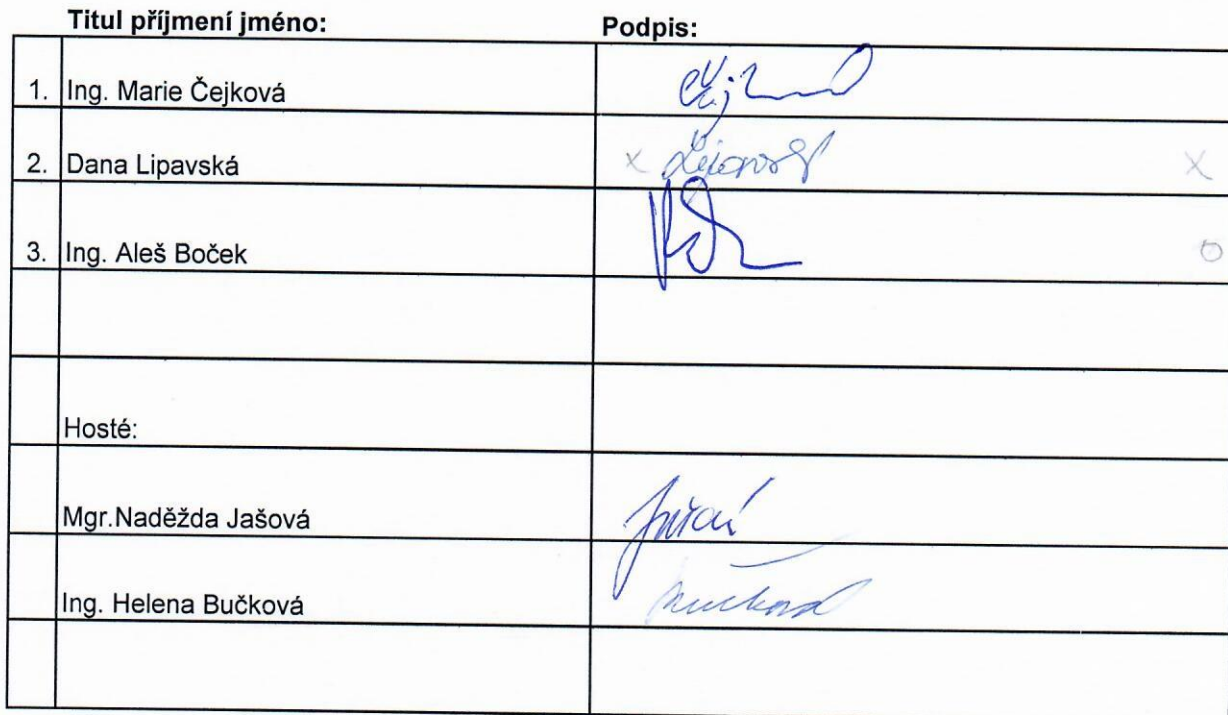 Titul příjmení jméno: Podpis:
1. Ing. Marie Čejková
2. Dana Lipavská x x
3. Ing. Aleš Boček o
Hosté:
Mgr.Naděžda Jašová
Ing. Helena Bučková